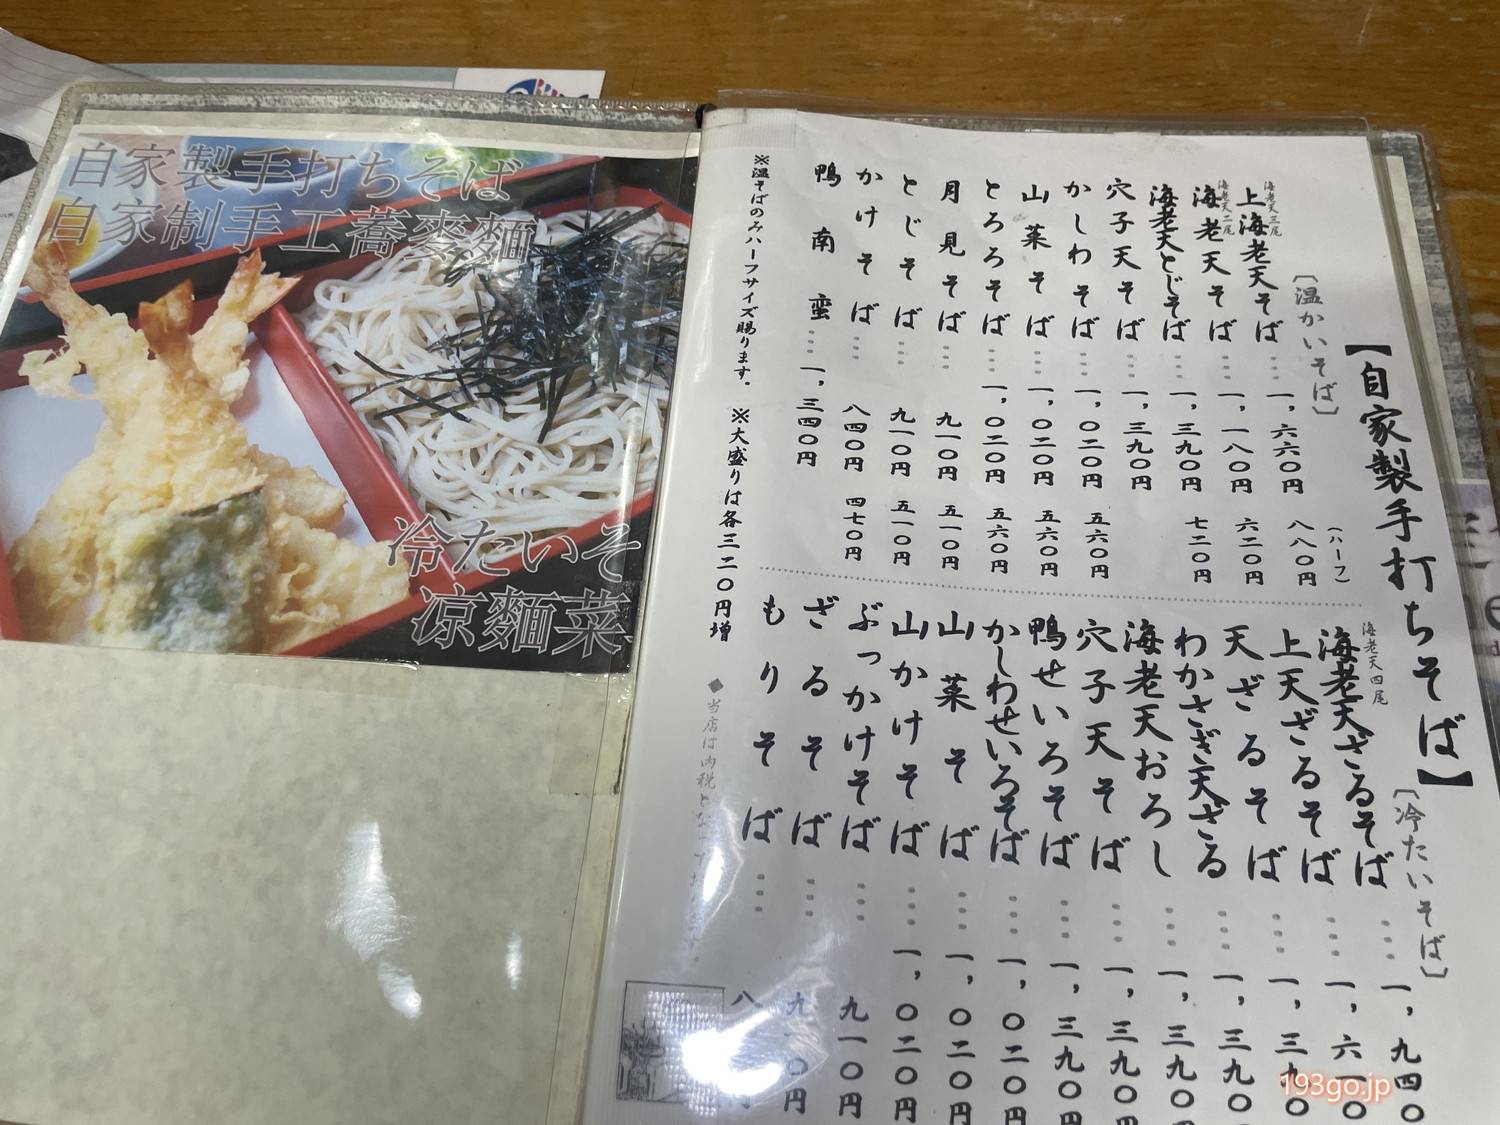 自家製手打ちそば
自家制手工蕎麥麵
冷たいそ
涼麵菜
【自家製手打ちそば】
〔温かいそば〕
(ハーフ)
海老天三尾
上海老天そば…一,六六〇円 八八〇円
海老天二尾
海老天そば…一,一八〇円 六二〇円
海老天とじそば…一,三九〇円 七二〇円
穴子天そば…一,三九〇円
かしわそば…一,〇二〇円 五六〇円
山菜そば…一,〇二〇円 五六〇円
とろろそば…一,〇二〇円 五六〇円
月見そば…九一〇円 五一〇円
とじそば…九一〇円 五一〇円
かけそば…八四〇円 四七〇円
鴨南蛮…一,三四〇円
※温そばのみハーフサイズ賜ります。 ※大盛りは各三二〇円増
〔冷たいそば〕
海老天四尾
海老天ざるそば…一,九四〇
上天ざるそば…一,六一〇
天ざるそば…一,三九〇
わかさぎ天ざる…一,三九〇
海老天おろし…一,三九〇
穴子天そば…一,三九〇円
鴨せいろそば…一,三九〇円
かしわせいろそば…一,〇二〇円
山菜そば…一,〇二〇円
山かけそば…一,〇二〇円
ぶっかけそば…九一〇円
ざるそば…九一〇円
もりそば…八
◆当店は内税とな
193go.jp